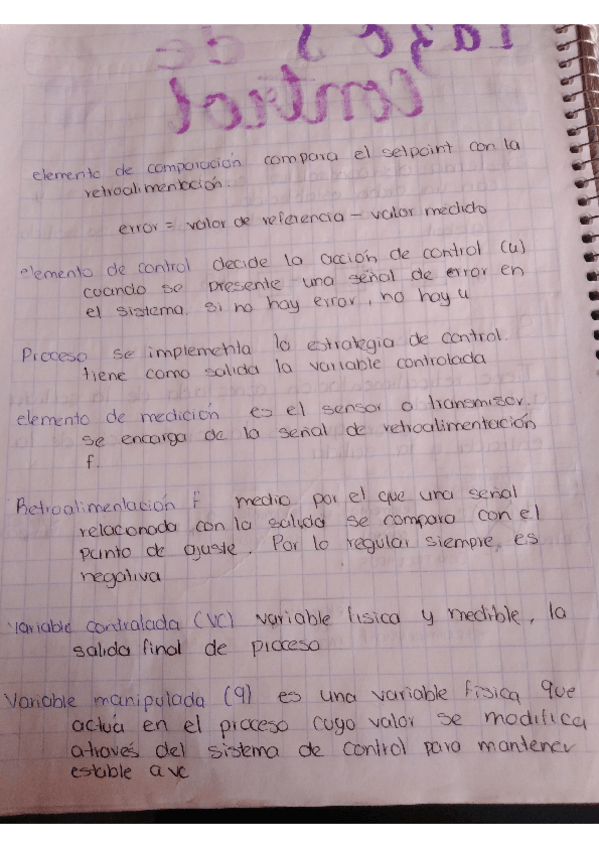 Lazos de
Control
elemento de comparación compara el setpoint con la
retroalimentación.
error = valor de referencia - valor medido
elemento de control decide la acción de control (u)
cuando se presente una señal de error en
el sistema. si no hay error, no hay u
Proceso se implementa la estrategia de control.
tiene como salida la variable controlada
elemento de medición es el sensor o transmisor.
se encarga de la señal de retroalimentación
f.
Retroalimentación f medio por el que una señal
relaconada con la salida se compara con el
punto de ajuste. Por lo regular siempre, es
negativa
Variable contralada (VC) variable fisica y medible, la
salida final de proceso
Variable manipulada (q) es una variable física que
actuá en el proceso cuyo valor se modifica
através del sistema de control para mantener
estable a vc